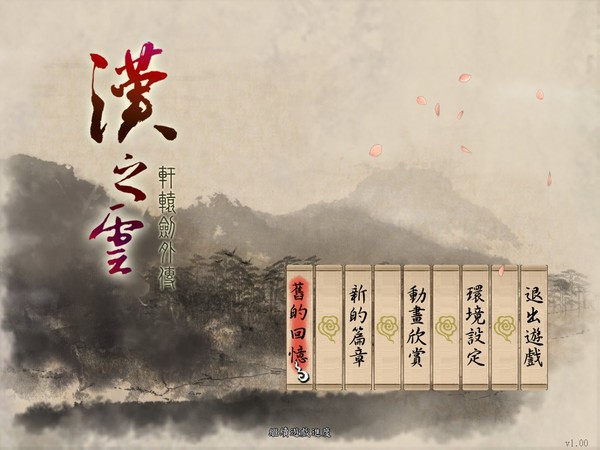 漢之雲
軒轅劍外傳
舊的回憶
新的篇章
動畫欣賞
環境設定
退出遊戲
繼續遊戲進度
v1.00